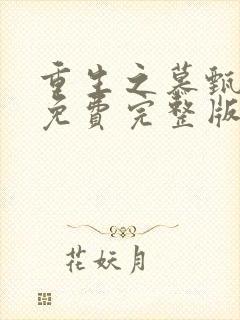 重生之慕甄
免費完整版
花妖月